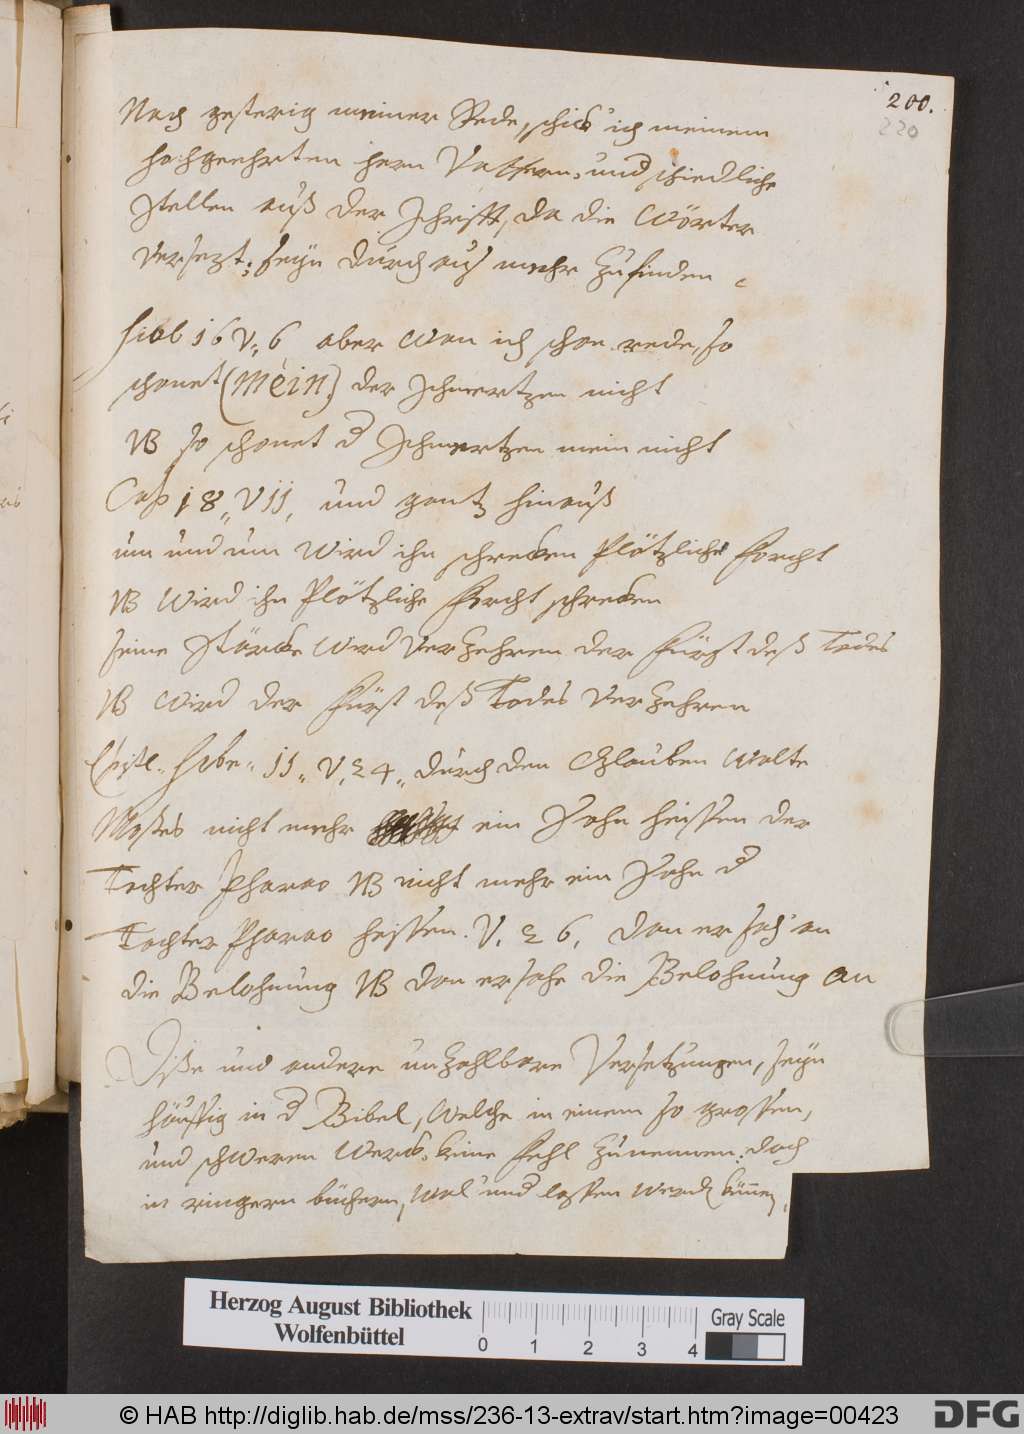 200.
220
Nach gesterig meiner Rede, schick' ich meinem
hochgeehrten hern Vattern, undschiedliche
stellen auß der Schrifft, da die Wörter
versezt; seyn durch auß mehr zufinden
Hiob 16 V; 6 aber wan ich schon rede, so
schonet (mein) der schmertzen nicht
NB so schonet d schmertzen mein nicht
Cap 18,, V 11, und gantz hinauß
um und um wird ihn schrecken Plötzliche Forcht
NB wird ihn Plötzliche Forcht schrecken
seine stärcke wird verzehren der Fürst deß Todes
NB wird der Fürst deß Todes verzehren
Epistl. Hebr. 11,, V. 24,, durch den Glauben wolte
Moßes nicht mehr ein Sohn heissen der
Tochter Pharao NB nicht mehr ein Sohn d
Tochter Pharao heissen. V. 26, dan er sah' an
die Belohnung NB dan er sahe die Belohnung an
Diße und andere unzahlbare Versetzungen, seyn
häuffig in d Bibel, welche in einem so grossen,
und schweren werck, keine Fehl zunennen. doch
in ringern büchern, wol und lassen werdn können,
Herzog August Bibliothek
Wolfenbüttel
0 1 2 3 4
Gray Scale
© HAB http://diglib.hab.de/mss/236-13-extrav/start.htm?image=00423
DFG